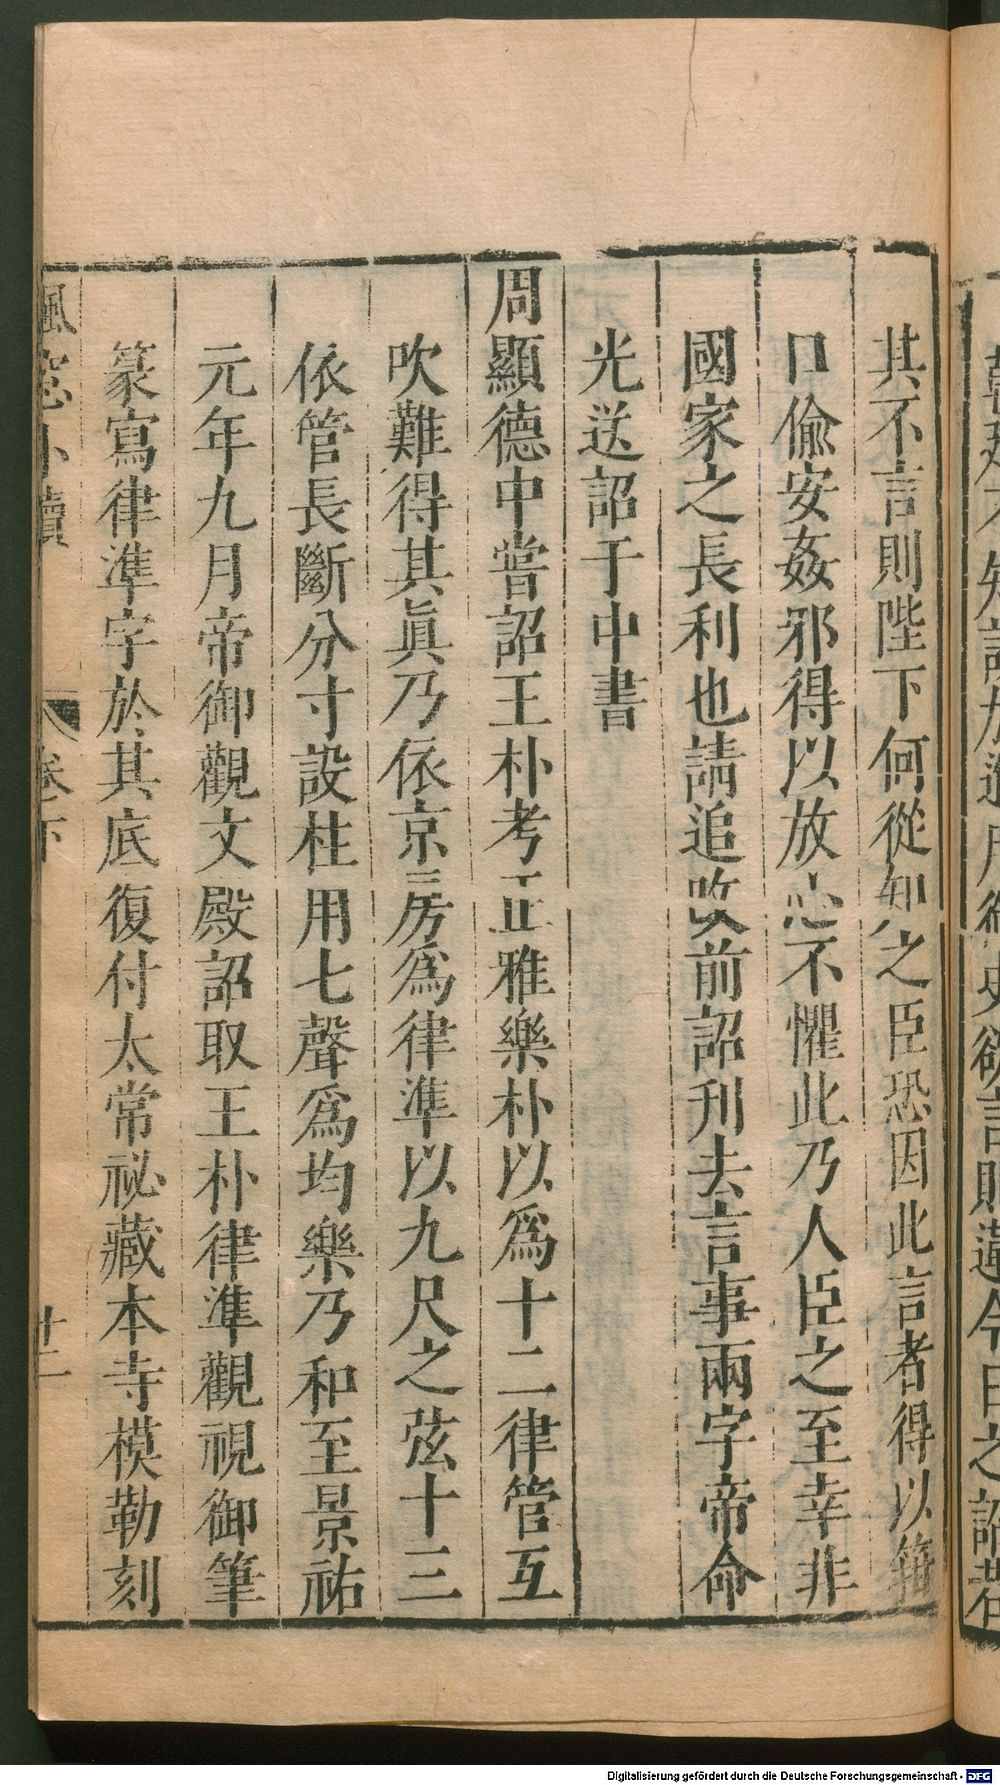 其不言則陛下何從知之臣恐因此言者得以箝
口偸安姦邪得以放心不懼此乃人臣之至幸非
國家之長利也請追改前詔刋去言事兩字帝命
光送詔于中書
周顯德中嘗詔王朴考正雅樂朴以爲十二律管互
吹難得其眞乃依京房爲律準以九尺之弦十三
依管長斷分寸設柱用七聲爲均樂乃和至景祐
元年九月帝御觀文殿詔取王朴律準觀視御筆
篆寫律準字於其底復付太常祕藏本寺模勒刻
楓窓小牘
卷下
十二
Digitalisierung gefördert durch die Deutsche Forschungsgemeinschaft - DFG